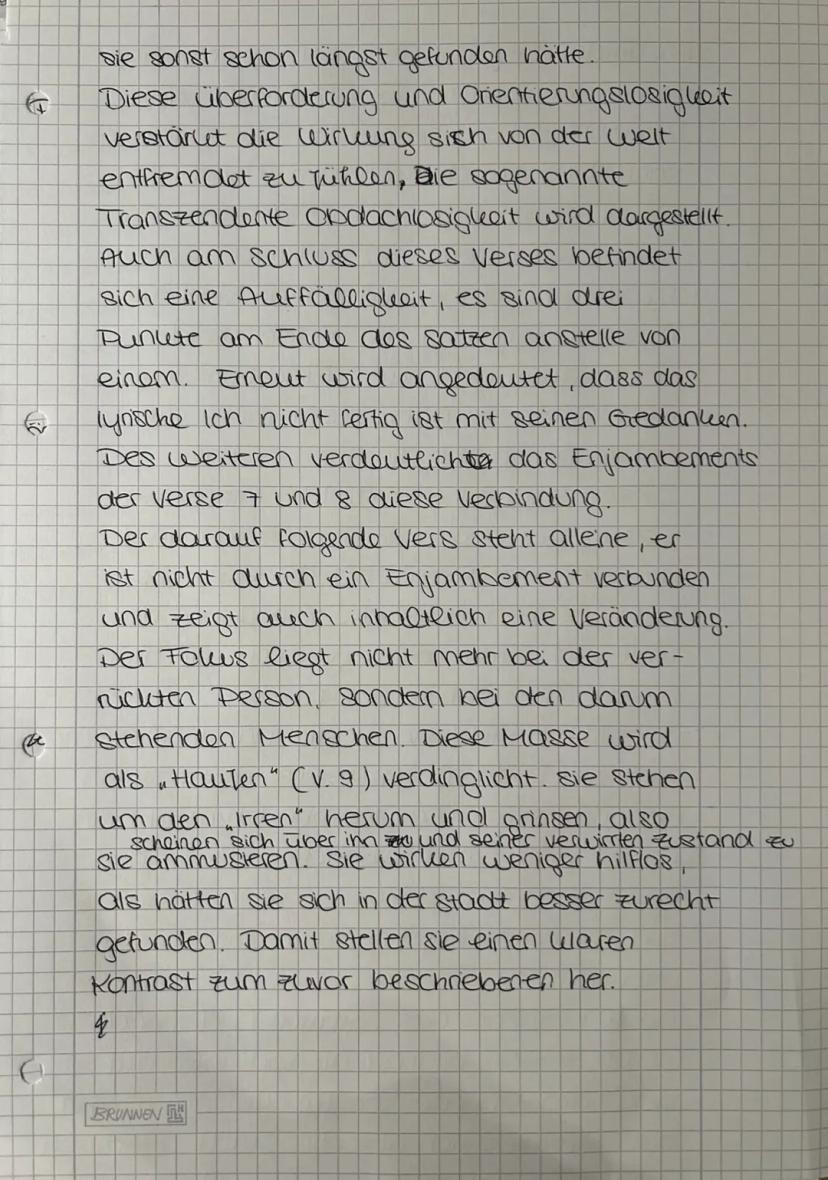 sie sonst schon längst gefunden hätte.
Diese überforderung und Orientierungslosigkeit
verstärkt die Wirkung sich von der Welt
entfremdet zu fühlen, Die sogenannte
Transzendente Obdachlosigkeit wird dargestellt.
Auch am schluss dieses Verses befindet
sich eine Auffälligkeit, es sind drei
Punkte am Ende des satzen anstelle von
einem. Erneut wird angedeutet, dass das
lyrische Ich nicht fertig ist mit seinen Gedanken.
Des weiteren verdeutlicht das Enjambements
der Verse 7 und 8 diese Verbindung.
Der darauf folgende Vers steht alleine, er
ist nicht durch ein Enjambement verbunden
und zeigt auch inhaltlich eine Veränderung.
Der Fokus liegt nicht mehr bei der ver-
rückten Person, sondern bei den darum
stehenden Menschen. Diese Masse wird
als „Haufen" (V. 9) verdinglicht. sie stehen
um den „Irren" herum und grinsen, also
scheinen sich über ihn und seiner verwirrten zustand zu
sie ammusieren. Sie wirken weniger hilflos,
als hätten sie sich in der stadt besser zurecht
gefunden. Damit stellen sie einen klaren
Kontrast zum zuvor beschriebenen her.
BRUNNEN